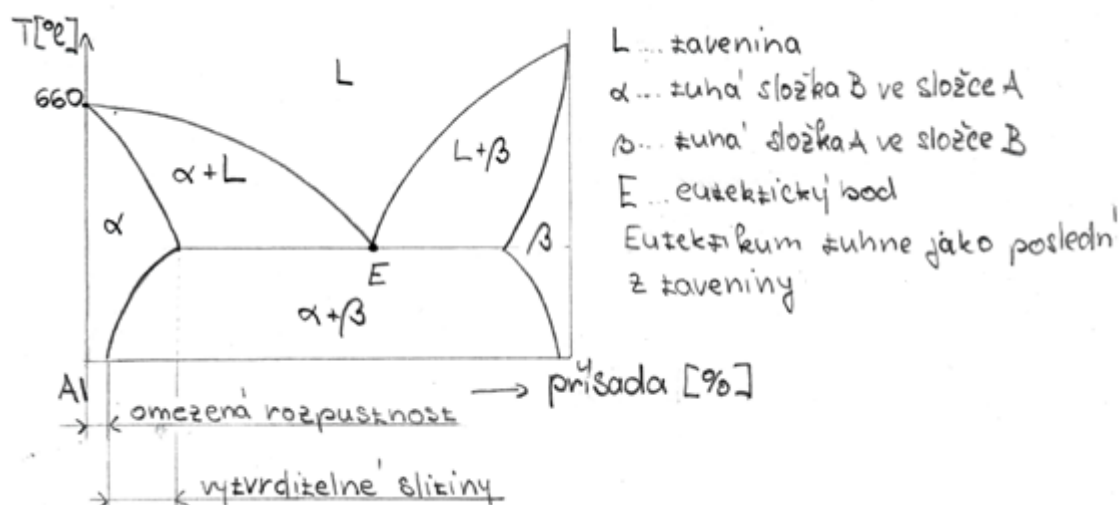 T[°C]
660
L
α+L
L+β
α
β
E
α+β
Al
→ přísada [%]
omezená rozpustnost
vytvrditelné slitiny
L ... tavenina
α ... tuhá složka B ve složce A
β ... tuhá složka A ve složce B
E ... eutektický bod
Eutektikum tuhne jako poslední
z taveniny